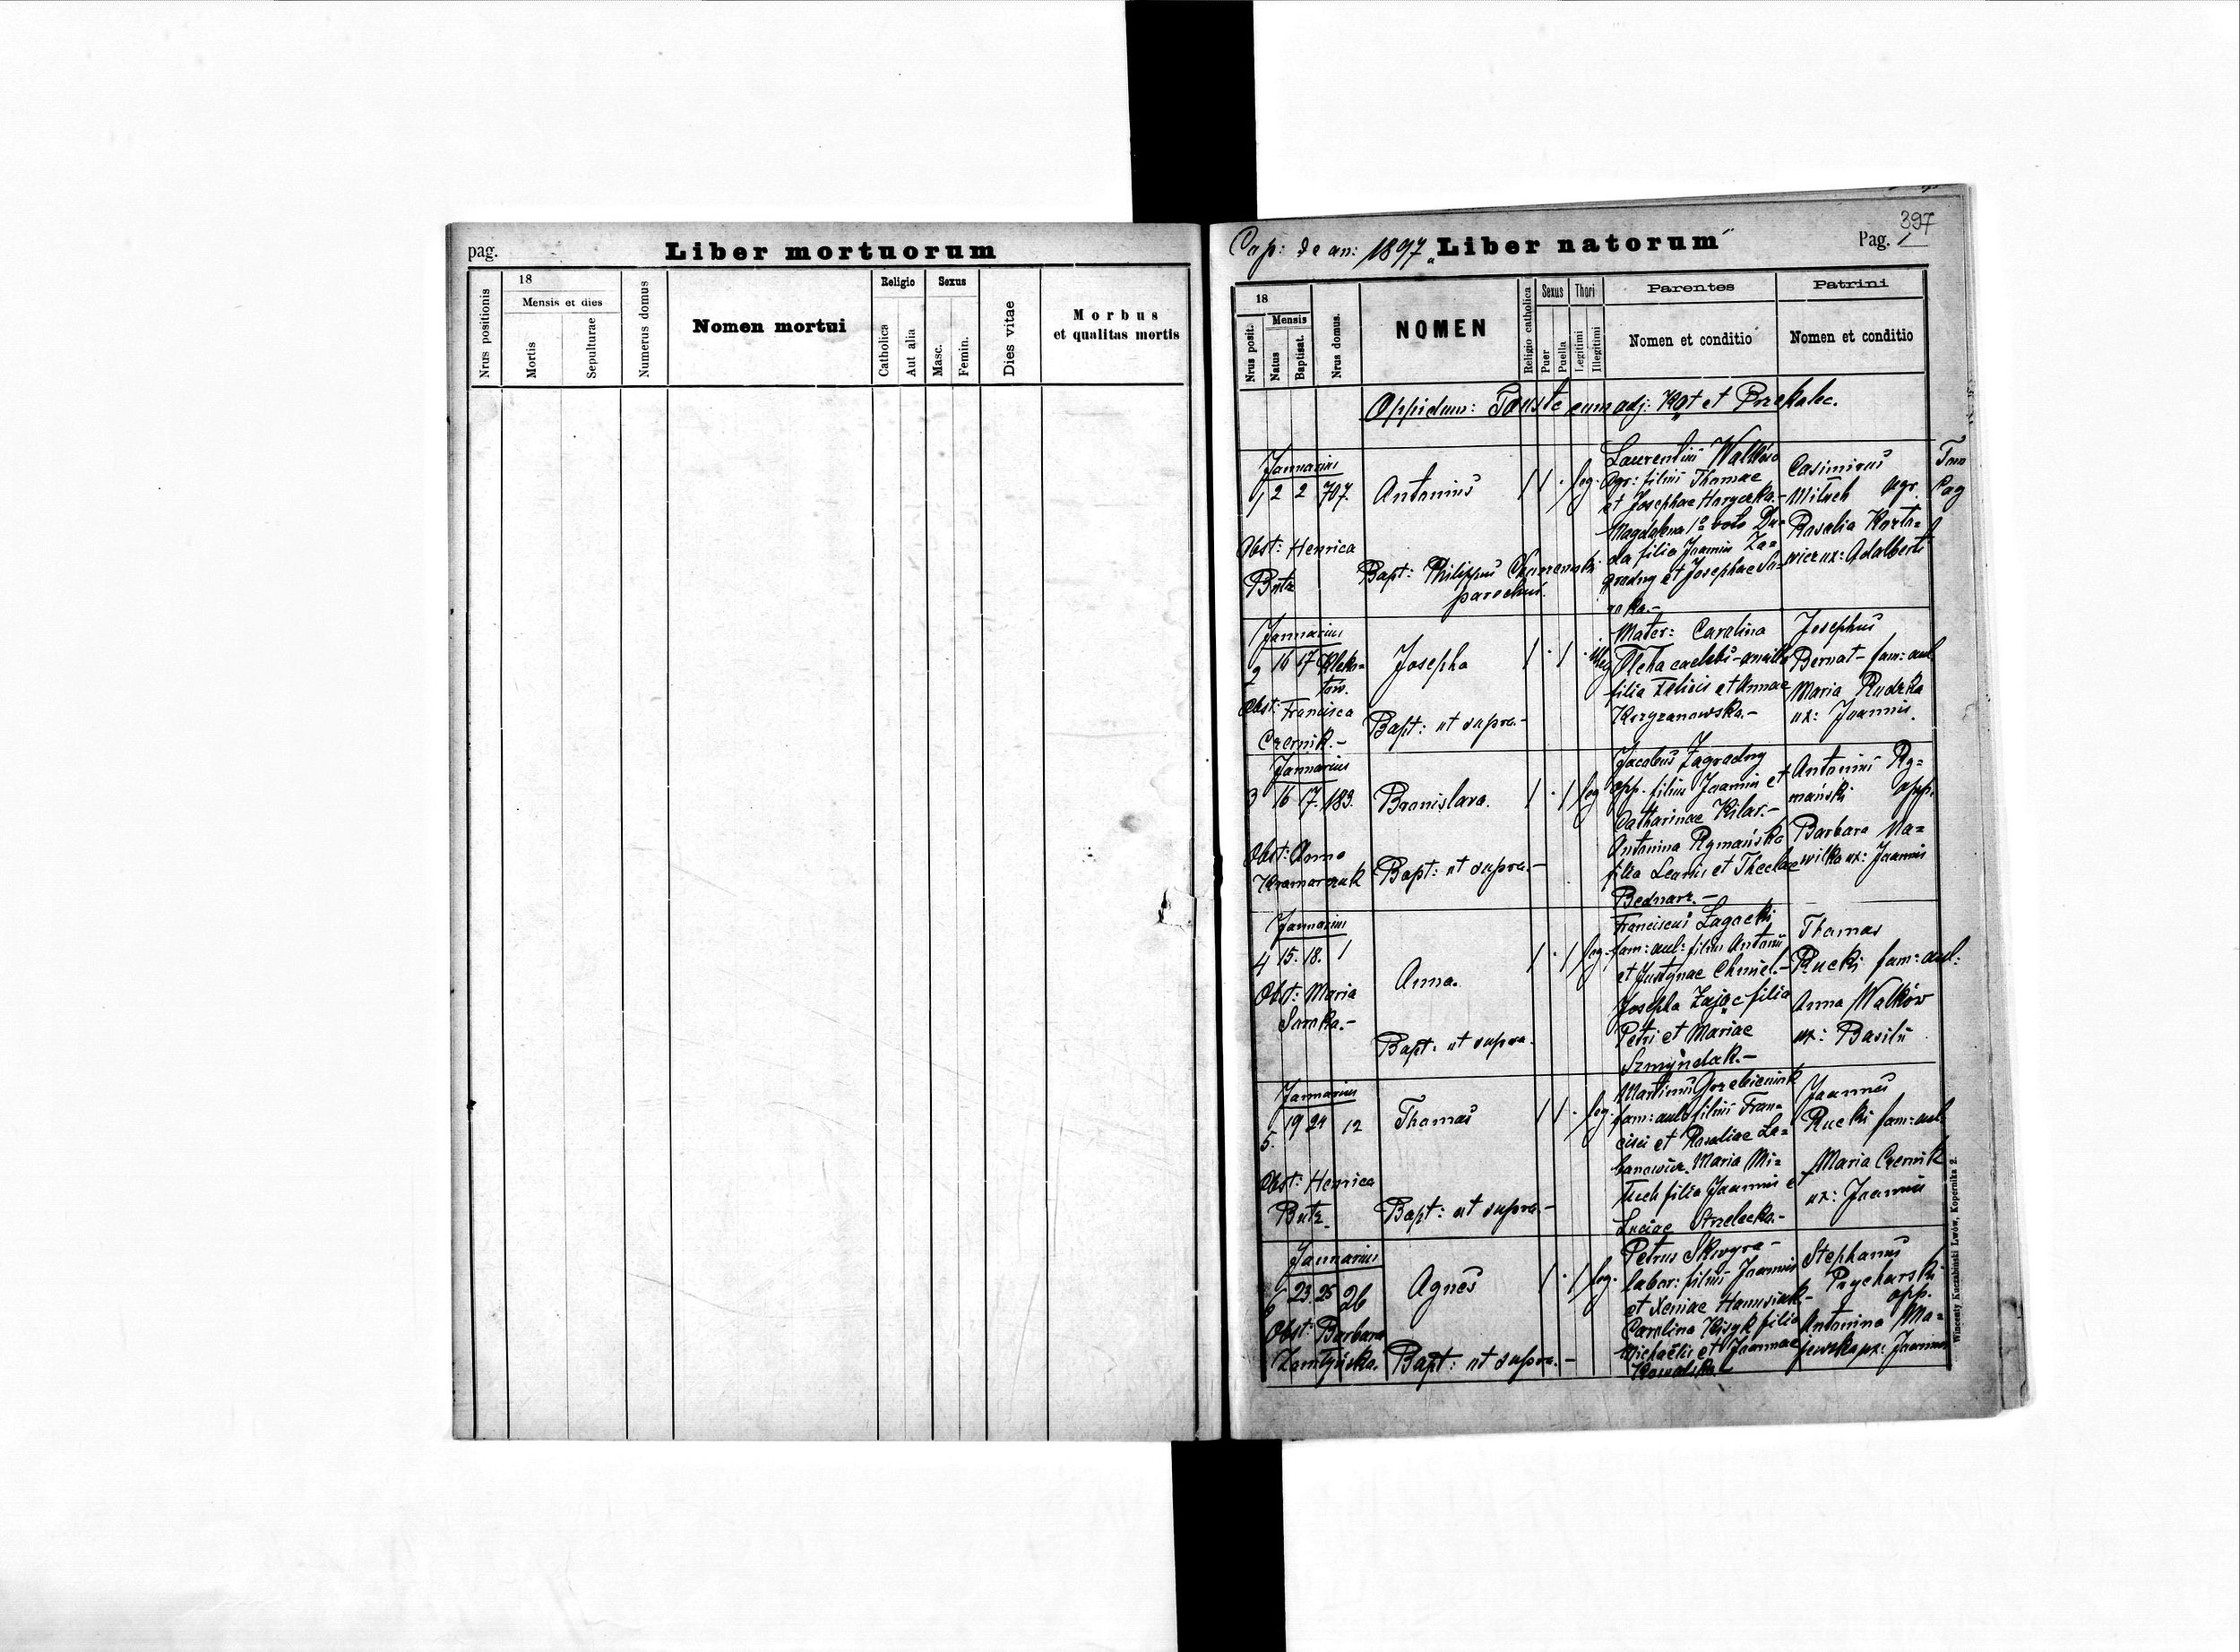 pag.
Liber mortuorum
Nrus positionis
18
Mensis et dies
Mortis
Sepulturae
Numerus domus
Nomen mortui
Religio
Catholica
Aut alia
Sexus
Masc.
Femin.
Dies vitae
Morbus
et qualitas mortis
397
Cop: de an: 1897 „Liber natorum"
Pag. 1
18
Nrus posit.
Mensis
Natus
Baptisat.
Nrus domus.
NOMEN
Religio catholica
Sexus
Puer
Puella
Thori
Legitimi
Illegitimi
Parentes
Nomen et conditio
Patrini
Nomen et conditio
Oppidum: Touste cum adj: Kąt et Przekalec.
Januarius
1 2 2 707.
Antonius
1 1 . leg.
Obst: Henrica
Butz
Bapt: Philippus
parochus.
Laurentius Walków
agr: filius Thomae
et Josephae Haryczka.-
Magdalena 1º voto Du-
da filia Joannis Za-
gradny et Josephae Sa-
raka.-
Casimirus
Miluch agr.
Rosalia Korto-
wicz ux: Adalberti
Januarius
2 16 17 Kleko-
tów.
Josepha
1 . 1 . illeg
Obst: Francisca
Czernik.-
Bapt: ut supra.-
Mater: Carolina
Oleha caelebs-ancilla
filia Felicis et Annae
Krzyzanowska.-
Josephus
Bernat - fam: aul
Maria Rudzka
ux: Joannis.
Januarius
3 16 17. 183.
Bronislava.
1 . 1 leg
Obst: Anna
Kramarzuk
Bapt: ut supra.-
Jacobus Zagradny
opp. filius Joannis et
Catharinae Kilar.-
Antonina Rymańska
filia Leonis et Theclae
Bednarz.-
Antonius Ry-
mański opp.
Barbara Na-
wilka ux: Joannis
Januarius
4 15. 18. 1
Anna.
1 . 1 leg.
Obst: Maria
Saraka.-
Bapt: ut supra.
Franciscus Zagacki
fam: aul: filius Antonii
et Justynae Chmiel.-
Josepha Zając filia
Petri et Mariae
Szmyndak.-
Thomas
Rucki fam: aul:
Anna Walków
ux: Basilii
Januarius
5. 19 24 12
Thomas
1 1 . leg.
Obst: Henrica
Butz.
Bapt: ut supra-
Martinus Grzebieniuk
fam: aul: filius Fran-
cisci et Rosaliae La-
banowicz. Maria Mi-
luch filia Joannis et
Luciae Strzelecka.-
Joannes
Rucki fam: aul
Maria Czernik
ux: Joannis
Januarius
6 23. 25 26
Agnes
1 . 1 leg.
Obst: Barbara
Bapt: ut supra.-
Petrus Skwyra-
labor: filius Joannis
et Xeniae Hanusiak-
Carolina Kisyk filia
Michaëlis et Joannae
Kowalska.
Stephanus
Prycharski
opp.
Antonina Ma-
jewska ux: Joannis
Wincenty Kuczabiński Lwów, Kopernika 2.